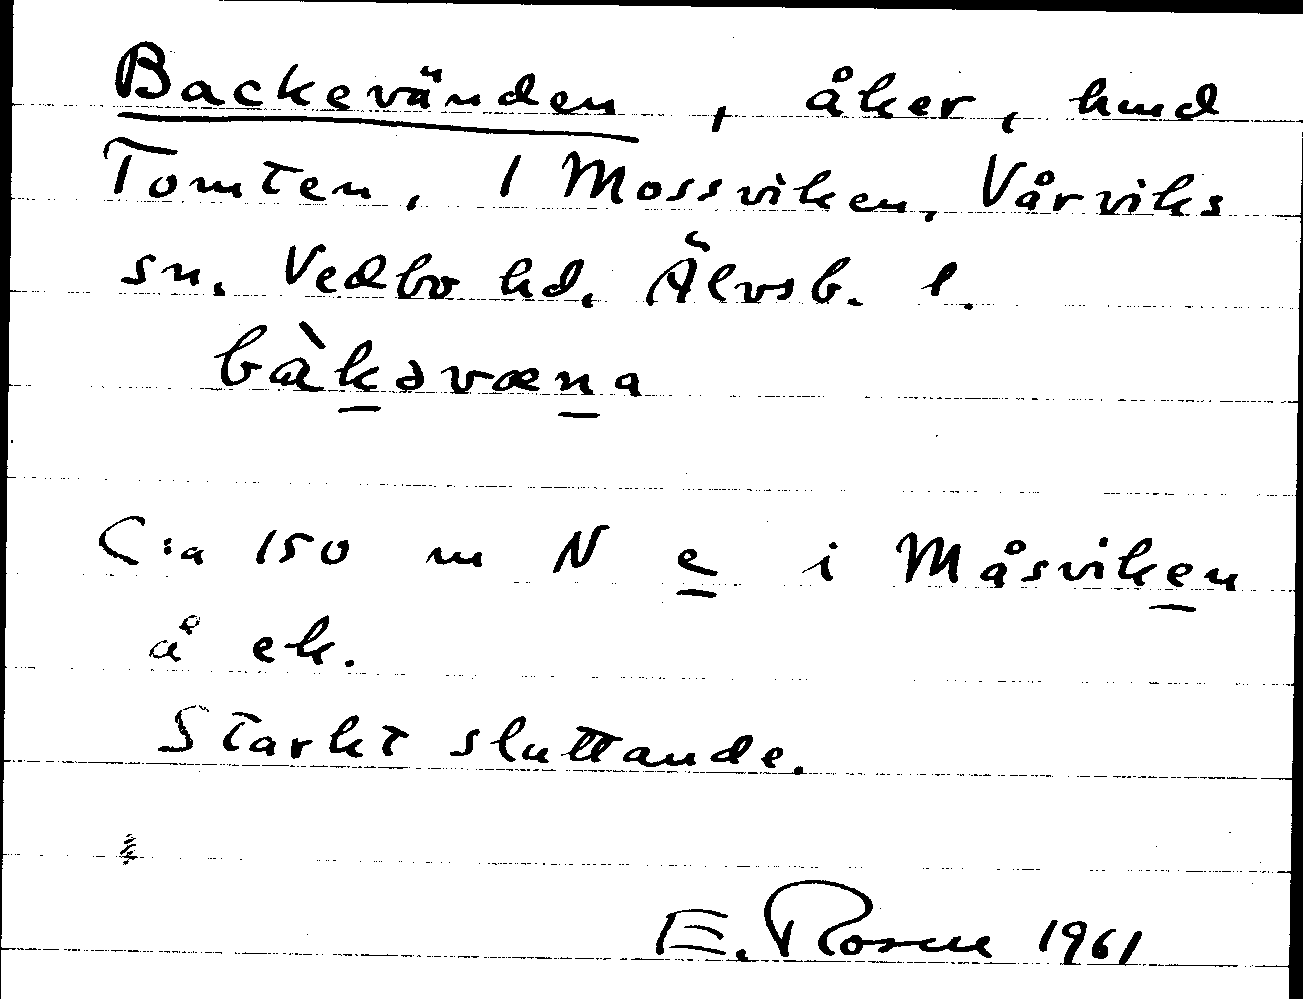 Backevänden, åker, hmd
Tomten, 1 Mossviken, Vårviks
sn. Vedbo hd. Älvsb. l.
bàkəvæna
C:a 150 m N e i Måsviken
å ek.
Starkt sluttande.
E. Rosen 1961